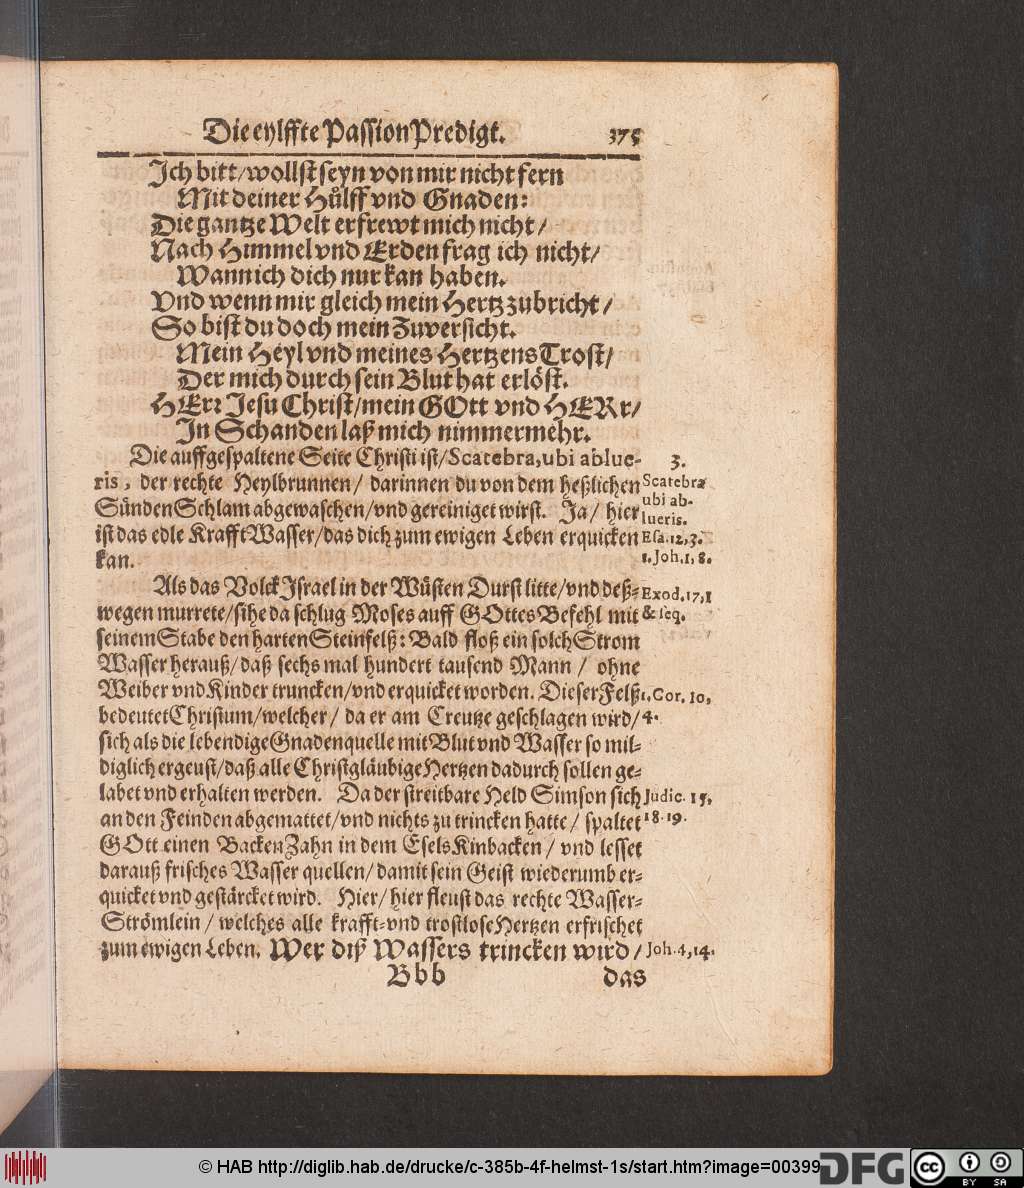 Die eylffte Passion Predigt. 375
Ich bitt/wollst seyn von mir nicht fern
Mit deiner Hůlff vnd Gnaden:
Die gantze Welt erfrewt mich nicht/
Nach Himmel vnd Erden frag ich nicht/
Wann ich dich nur kan haben.
Vnd wenn mir gleich mein Hertz zubricht/
So bist du doch mein Zuversicht.
Mein Heyl vnd meines Hertzens Trost/
Der mich durch sein Blut hat erlöst.
HErr Jesu Christ/mein GOtt vnd HERr/
In Schanden laß mich nimmermehr.
Die auffgespaltene Seite Christi ist/Scatebra, ubi ablue-
ris, der rechte Heylbrunnen/ darinnen du von dem heßlichen
Sünden Schlam abgewaschen/vnd gereiniget wirst. Ja/ hier
ist das edle Krafft Wasser/das dich zum ewigen Leben erquicken
kan.
3.
Scatebra
ubi ab-
lueris.
Esa.12,3.
1.Joh.1,8.
Als das Volck Israel in der Wüsten Durst litte/vnd deß-
wegen murrete/sihe da schlug Moses auff GOttes Befehl mit
seinem Stabe den harten Steinfelß: Bald floß ein solch Strom
Wasser herauß/daß sechs mal hundert tausend Mann/ ohne
Weiber vnd Kinder truncken/vnd erquicket worden. Dieser Felß
bedeutet Christum/welcher/ da er am Creutze geschlagen wird/
sich als die lebendige Gnadenquelle mit Blut vnd Wasser so mil-
diglich ergeust/daß alle Christgläubige Hertzen dadurch sollen ge-
labet vnd erhalten werden. Da der streitbare Held Simson sich
an den Feinden abgemattet/vnd nichts zu trincken hatte/ spaltet
GOtt einen Backen Zahn in dem Esels Kinbacken/ vnd lesset
darauß frisches Wasser quellen/damit sein Geist wiederumb er-
quicket vnd gestärcket wird. Hier/hier fleust das rechte Wasser-
Strömlein/ welches alle krafft- vnd trostlose Hertzen erfrischet
zum ewigen Leben. Wer diß Wassers trincken wird/
Exod.17,1
& seq.
1.Cor. 10,
4.
Judic. 15,
18.19.
Joh.4,14.
Bbb das
© HAB http://diglib.hab.de/drucke/c-385b-4f-helmst-1s/start.htm?image=00399
DFG
cc BY SA